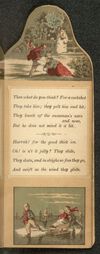 Then what do you think? For a cockshot
They take him; they pelt him and hit.
They knock off the snowman's nose and ears,
But he does not mind it a bit.
Hurrah! for the good thick ice.
Oh! is n't it jolly? They slide,
They skate, and in sleighs so fine they go,
And swift as the wind they glide.